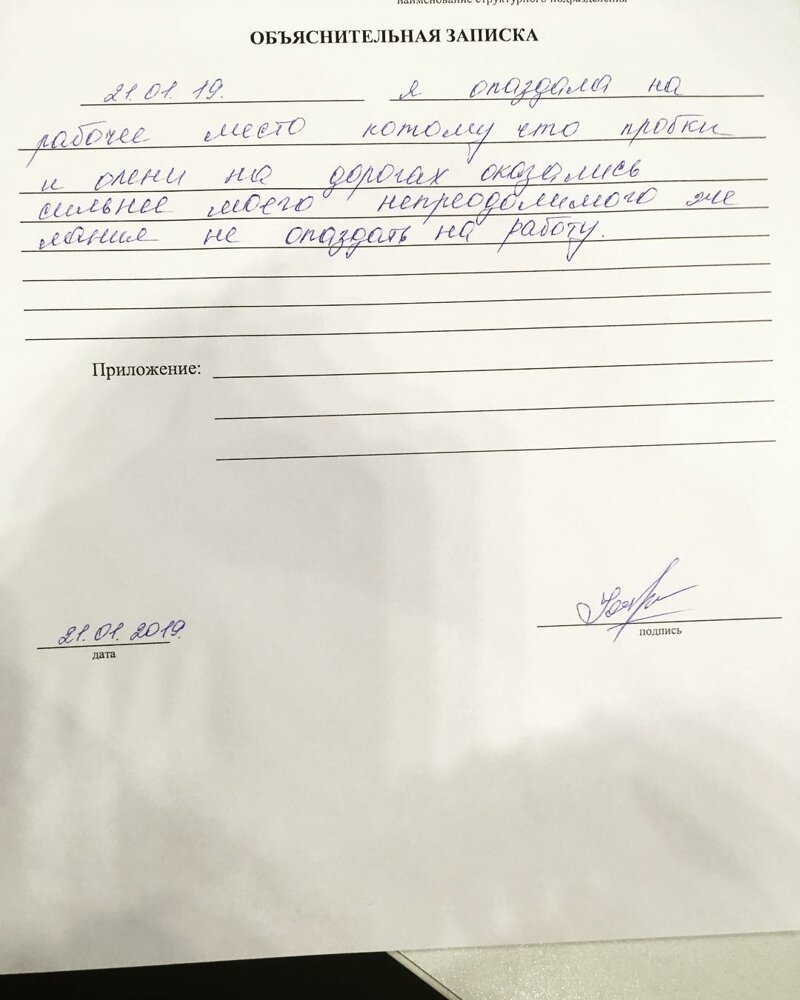 наименование структурного подразделения
ОБЪЯСНИТЕЛЬНАЯ ЗАПИСКА
21.01.19. я опаздала на
рабочее место потому что пробки
и олени на дорогах оказались
сильнее моего непреодолимого же
лания не опаздать на работу.
Приложение:
21.01.2019
дата
подпись